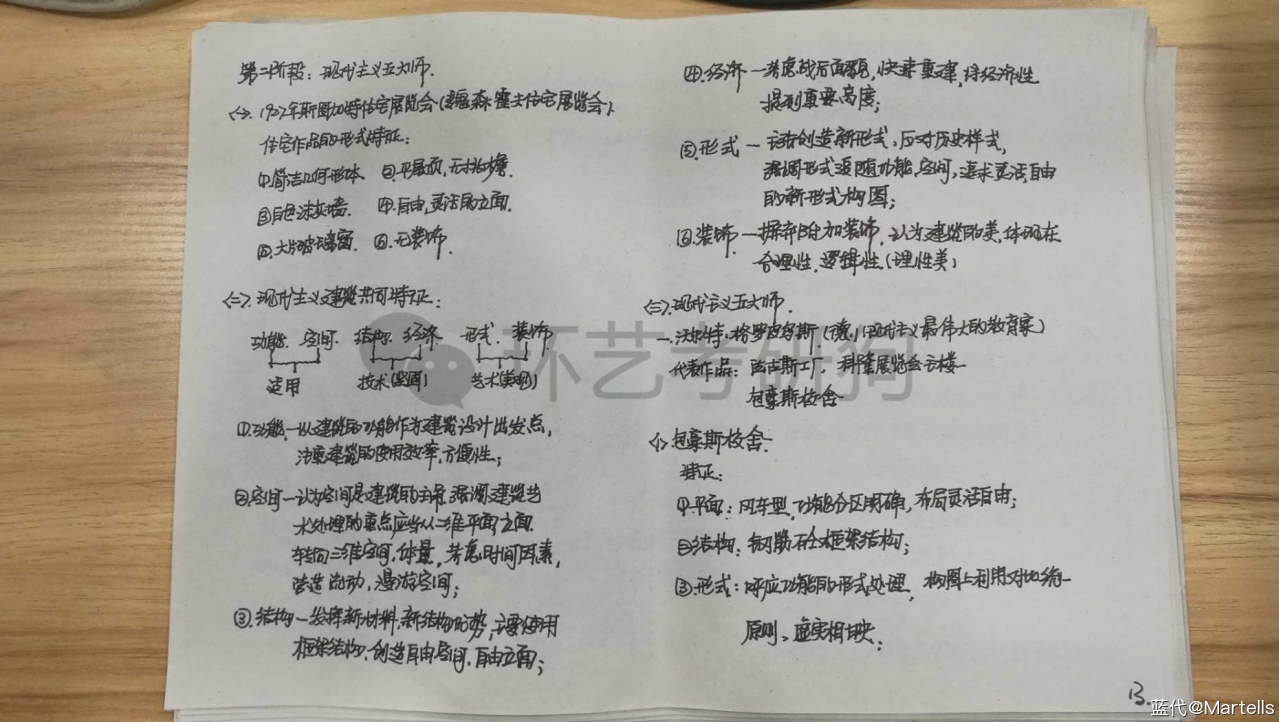 第二阶段：现代主义五大师.
<一>. 1927年斯图加特住宅展览会(魏森霍夫住宅展览会).
住宅作品的形式特征：
①.简洁几何形体. ②.平屋顶,无挑檐.
③白色抹灰墙. ④.自由,灵活的立面.
⑤.大片玻璃窗. ⑥.无装饰.
<二>.现代主义建筑共同特征：
功能. 空间. 结构. 经济. 形式. 装饰
适用 技术(坚固) 艺术(美观)
①.功能—以建筑的功能作为建筑设计出发点,
注重建筑的使用效率,方便性;
②.空间—认为空间是建筑的主角,强调建筑艺
术处理的重点应当从二维平面,立面
转向三维空间,体量,考虑时间因素,
营造流动,漫游空间;
③.结构—发挥新材料,新结构优势,主要使用
框架结构,创造自由空间,自由立面;
④.经济—考虑战后面貌,快速重建,将经济性
提到重要高度;
⑤.形式—主张创造新形式,反对历史样式,
强调形式追随功能,空间,追求灵活自由
的新形式构图;
⑥.装饰—摒弃附加装饰,认为建筑的美,体现在
合理性.逻辑性(理性美)
<三>.现代主义五大师.
一.沃尔特·格罗皮乌斯.(德)(现代主义最伟大的教育家)
代表作品：法古斯工厂, 科隆展览会办公楼
包豪斯校舍
<1>.包豪斯校舍.
特征：
①.平面：风车型,功能分区明确,布局灵活自由;
②结构：钢筋砼框架结构;
③.形式：呼应功能的形式处理,构图上利用对比统一
原则、虚实相映;
13.
环艺考研狗
蓝代@Martells